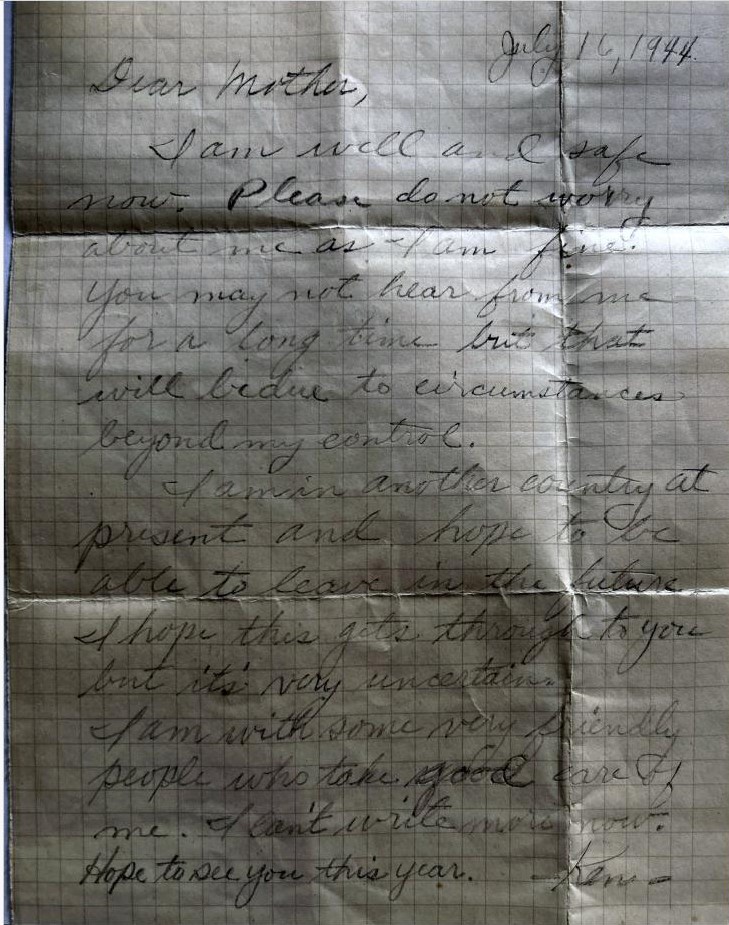 July 16, 1944.
Dear Mother,
I am well and safe
now. Please do not worry
about me as I am fine.
You may not hear from me
for a long time but that
will be due to circumstances
beyond my control.
I am in another country at
present and hope to be
able to leave in the future
I hope this gets through to you
but it's very uncertain.
I am with some very friendly
people who take good care of
me. I can't write more now.
Hope to see you this year. -Ken-